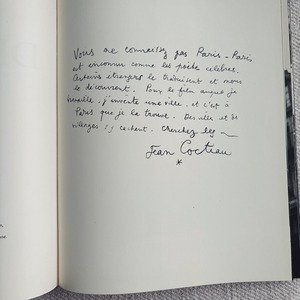 Vous ne connaissez pas Paris - Paris
est inconnu comme les poètes célèbres.
Certains étrangers le traduisent et nous
le découvrent. Pour le film auquel je
travaille, j'invente une ville. et c'est à
Paris que je la trouve. Des villes et des
villages s'y cachent. Cherchez les
Jean Cocteau
*